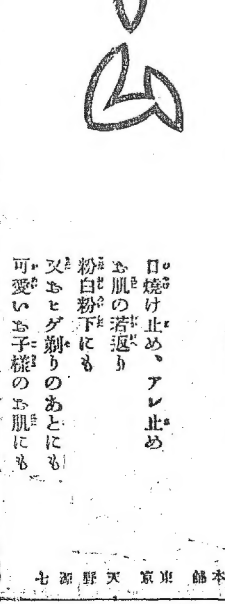 日焼け止め、アレ止め
お肌の若返り
粉白粉下にも
又おヒゲ剃りのあとにも
可愛いお子様のお肌にも
本舗 東京 天野源七